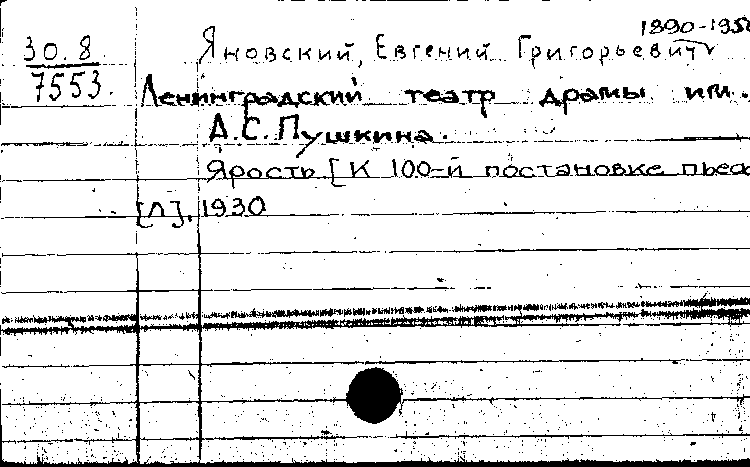 1890-195
30.8
7553.
Яновский, Евгений Григорьевич
Ленинградский театр драмы им.
А.С. Пушкина.
Ярость [К 100-й постановке пьес
[Л], 1930